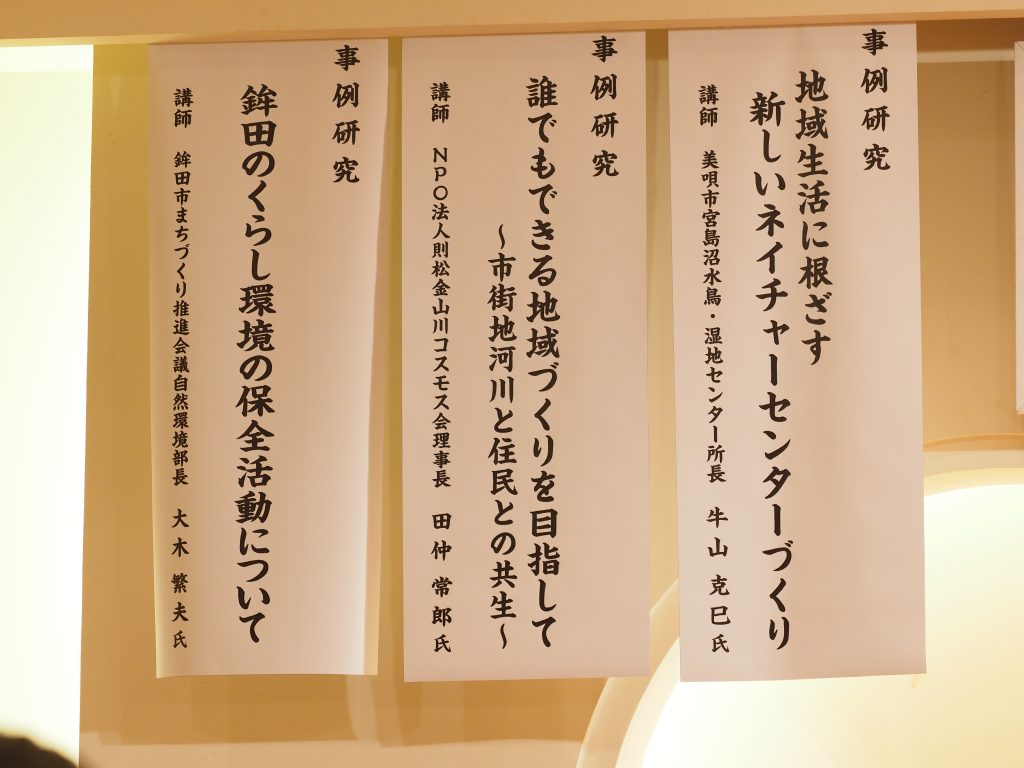 事例研究
地域生活に根ざす
新しいネイチャーセンターづくり
講師 美唄市宮島沼水鳥・湿地センター所長 牛山克巳氏
事例研究
誰でもできる地域づくりを目指して
～市街地河川と住民との共生～
講師 NPO法人則松金山川コスモス会理事長 田仲常郎氏
事例研究
鉾田のくらし環境の保全活動について
講師 鉾田市まちづくり推進会議自然環境部長 大木繁夫氏